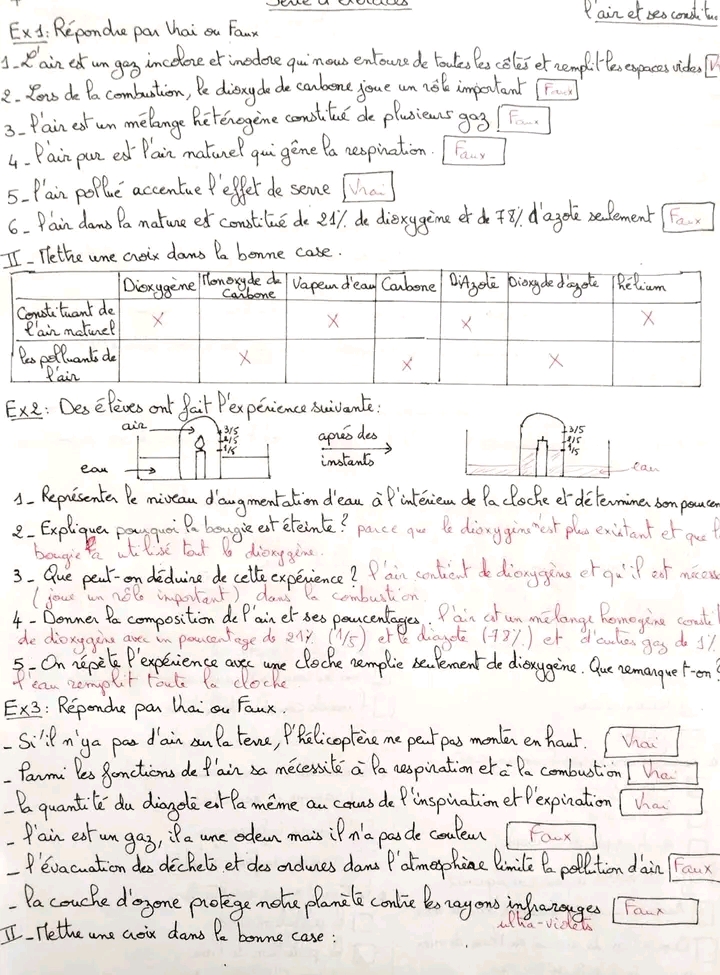 Série d'exercices
l'air et ses constitu
Ex 1: Répondre par Vrai ou Faux
1-L'air est un gaz incolore et inodore qui nous entoure de toutes les côtés et remplit les espaces vides
2-Lors de la combustion, le dioxyde de carbone joue un rôle important Faux
3-l'air est un mélange hétérogène constitué de plusieurs gaz Faux
4-l'air pur est l'air naturel qui gêne la respiration. Faux
5-l'air pollué accentue l'effet de serre Vrai
6-l'air dans la nature est constitué de 21% de dioxygène et de 78% d'azote seulement Faux
II-Mettre une croix dans la bonne case.
Dioxygène Monoxyde de Carbone Vapeur d'eau Carbone DiAzote Dioxyde d'azote hélium
Constituant de l'air naturel X X X X
les polluants de l'air X X X
Ex2: Des élèves ont fait l'expérience suivante:
air 3/5 2/5 1/5 eau
après des instants
3/5 2/5 1/5 eau
1-Représenter le niveau d'augmentation d'eau à l'intérieur de la cloche et déterminer son pourcen
2-Expliquer pourquoi la bougie est éteinte? parce que le dioxygène n'est plus existant et que l
bougie a utilisé tout le dioxygène.
3-Que peut-on déduire de cette expérience? l'air contient de dioxygène et qu'il est nécess
(joue un rôle important) dans la combustion.
4-Donner la composition de l'air et ses pourcentages. l'air est un mélange homogène consti
de dioxygène avec un pourcentage de 21% (1/5) et le diazote (78%) et d'autres gaz de 1%
5-On répète l'expérience avec une cloche remplie seulement de dioxygène. Que remarque t-on?
l'eau remplit toute la cloche.
Ex3: Répondre par Vrai ou Faux.
-Si'il n'ya pas d'air sur la terre, l'hélicoptère ne peut pas monter en haut. Vrai
-Parmi les fonctions de l'air sa nécessité à la respiration et à la combustion Vrai
-la quantité du diazote est la même au cours de l'inspiration et l'expiration Vrai
-l'air est un gaz, il a une odeur mais il n'a pas de couleur Faux
-l'évacuation des déchets et des ordures dans l'atmosphère limite la pollution d'air Faux
-la couche d'ozone protège notre planète contre les rayons infrarouges Faux
ultra-violets
II-Mettre une croix dans la bonne case: